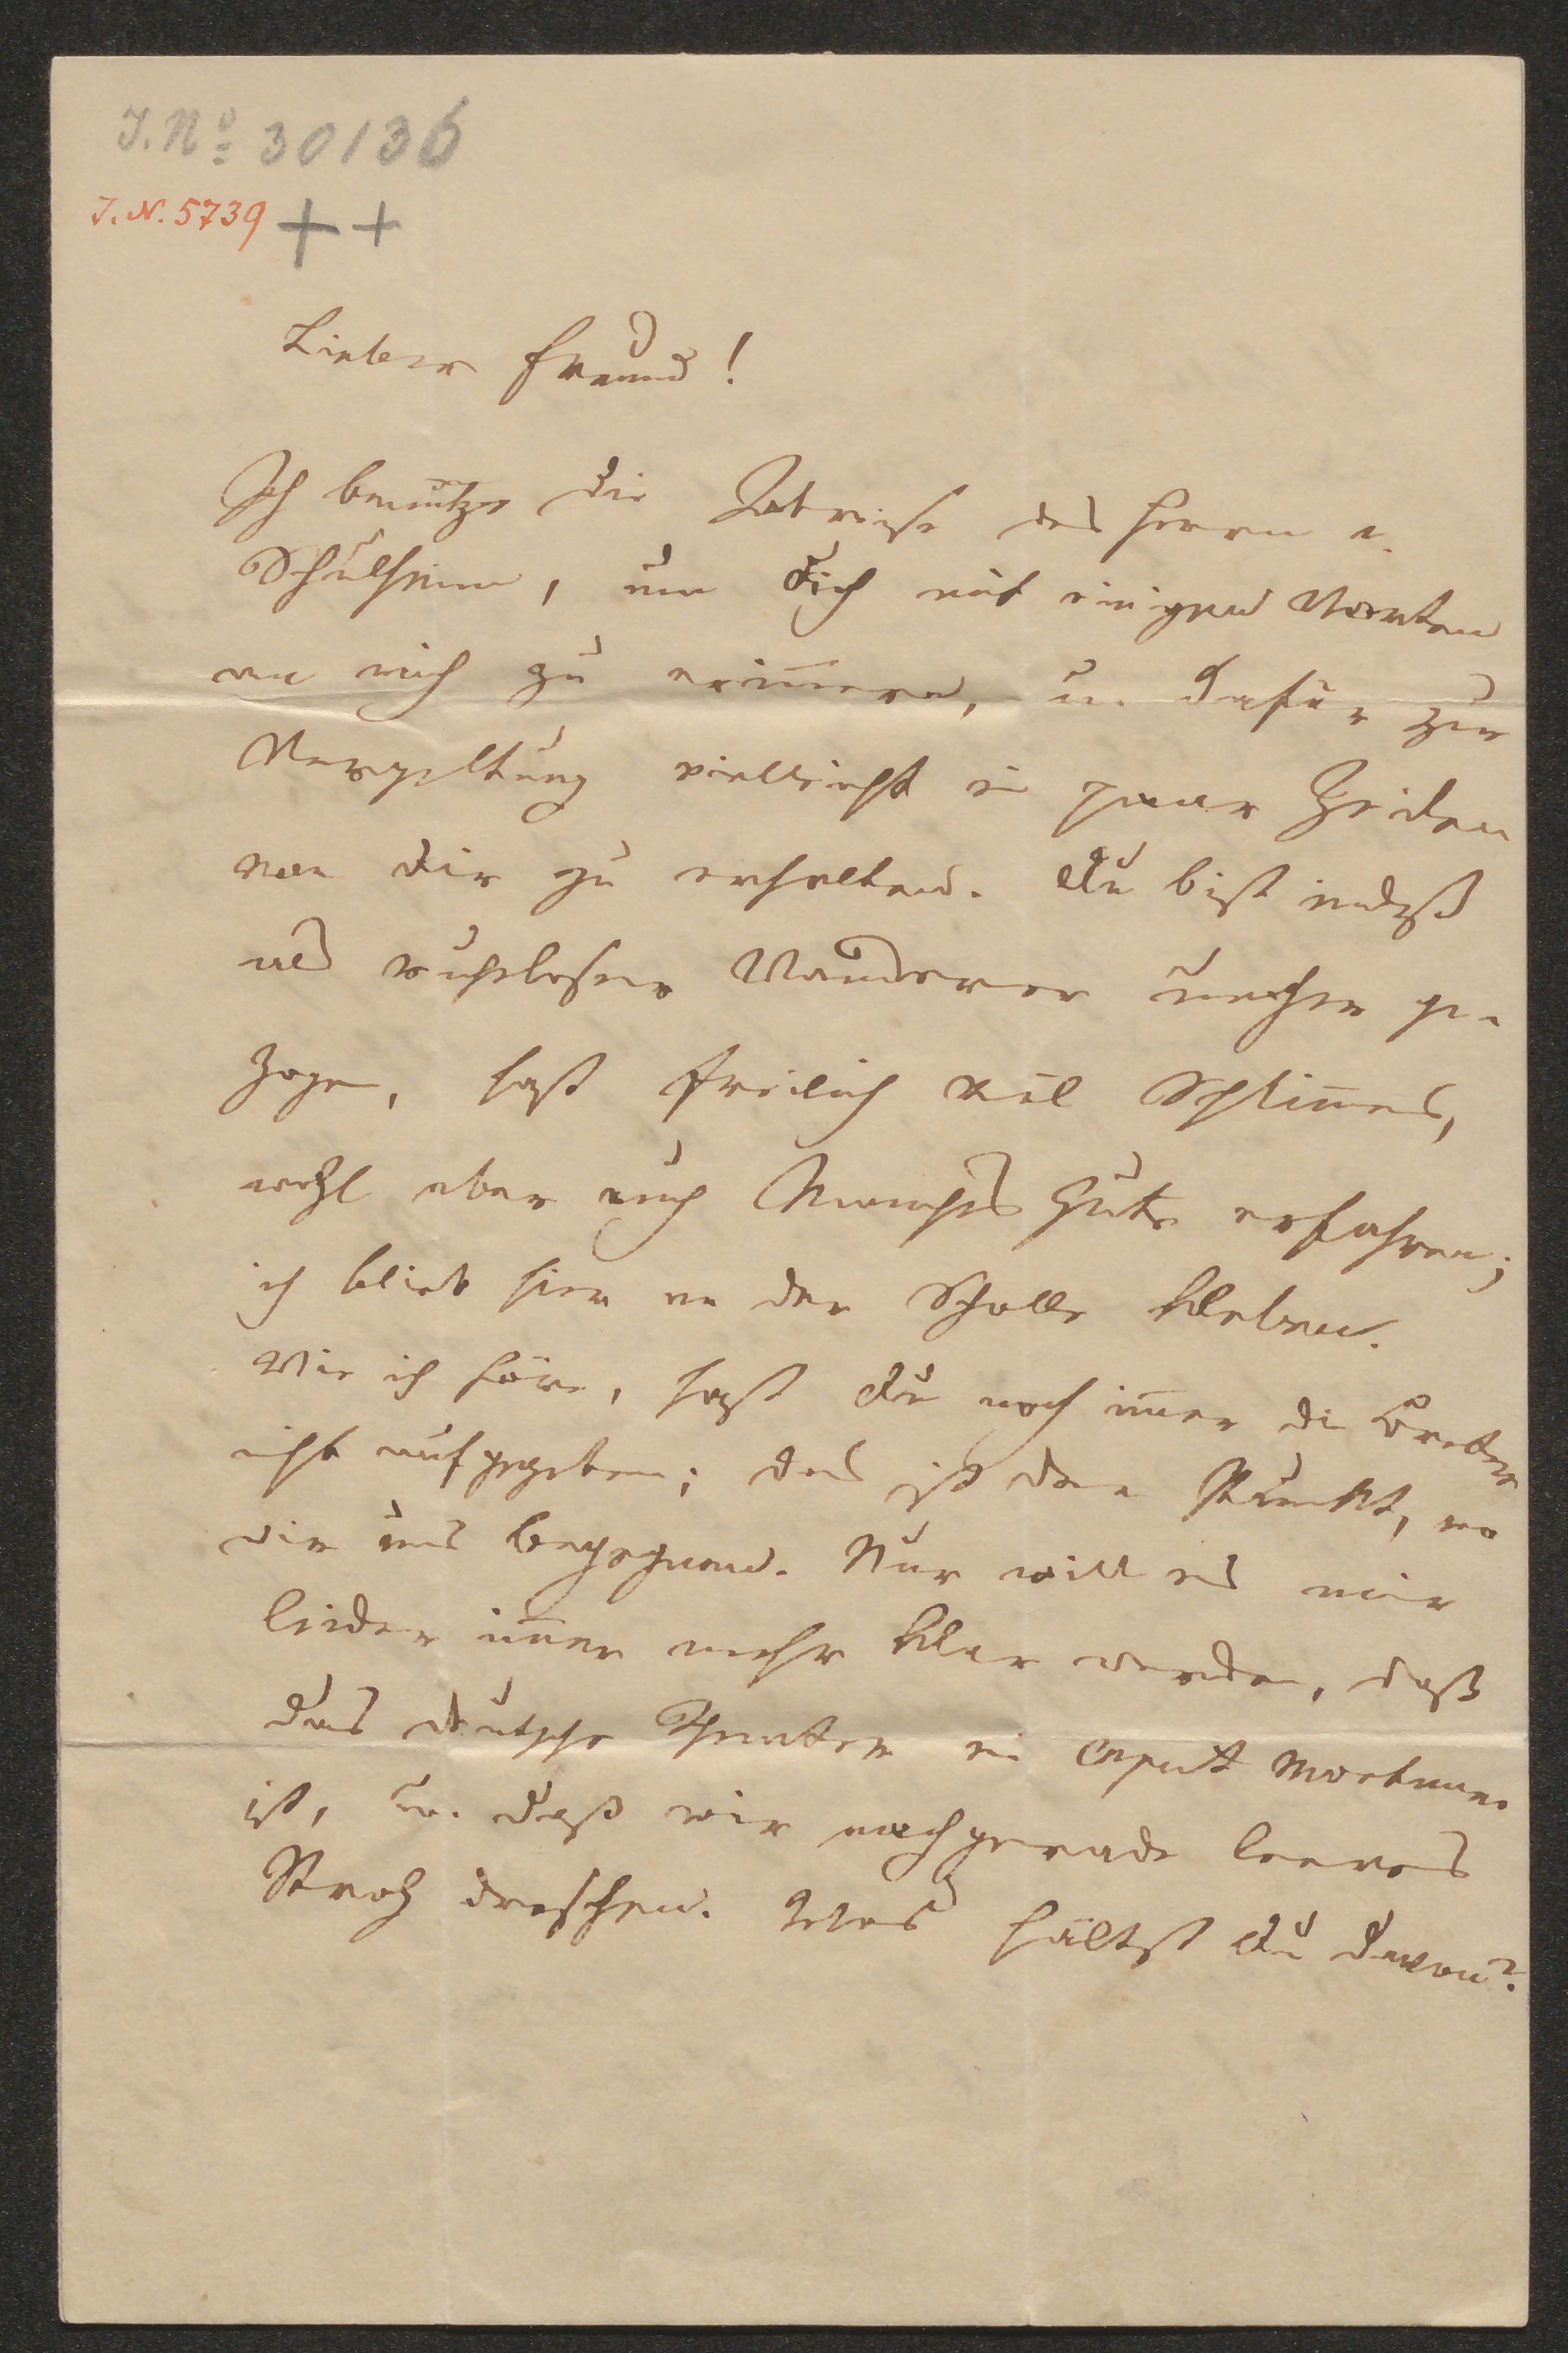 J. No: 30136
J. N. 5739 ++
Lieber Freund!
Ich benütze die Abreise des Herrn v.
um Dich mit einigen Worten
an mich zu erinnern, u. dafür zur
Vergeltung vielleicht ein paar Zeilen
von Dir zu erhalten. Du bist indeß
als ruheloser Wanderer umher ge-
zogen, hast freilich viel Schlimes,
wohl aber auch Manches Gute erfahren;
ich blieb hier an der Scholle kleben.
Wie ich höre, hast Du noch imer die Bretter
nicht aufgegeben; das ist der Punkt, wo
wir uns begegnen. Nur will es mir
leider imer mehr klar werden, daß
das deutsche Theater ein caput mortuum
ist, u. daß wir nachgerade leeres
Stroh dreschen. Was hältst Du davon?